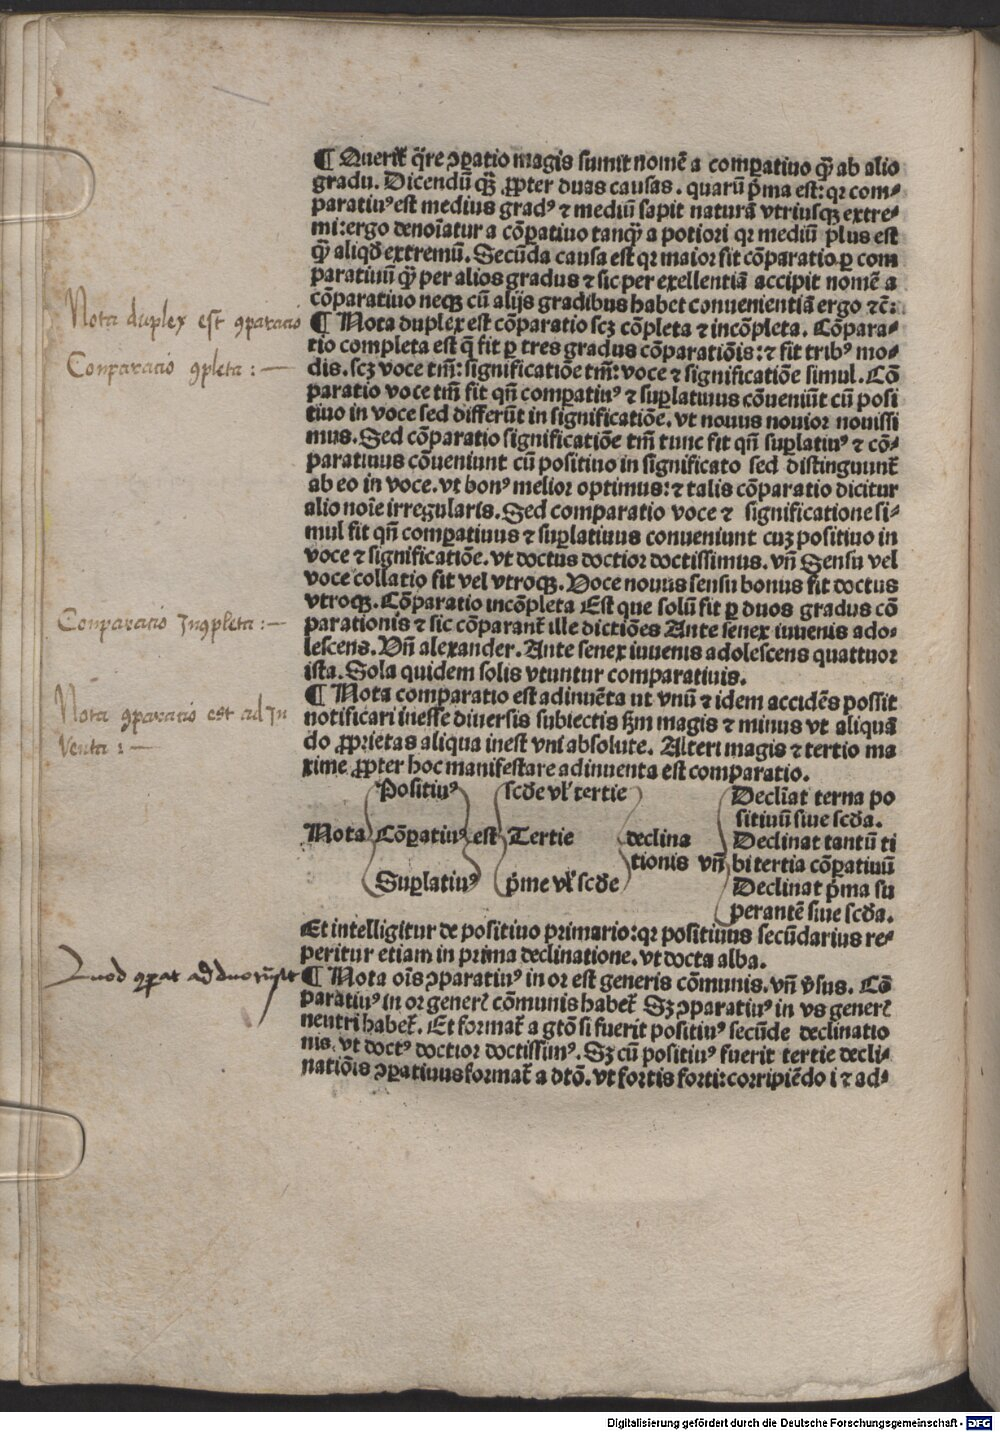 ¶ Querit̃ q̃re ↄꝑatio magis sumit nomē a comꝑatiuo q̄ȝ ab alio
gradu. Dicendū ꝙȝ ꝓpter duas causas. quarū p̄ma est: qꝛ com-
paratiuꝰ est medius gradꝰ ⁊ mediū sapit naturā vtriusqȝ extre-
mi: ergo denoīatur a cōꝑatiuo tanq̄ȝ a potiori qꝛ mediū plus est
q̄ȝ aliqđ extremū. Secūda causa est qꝛ maior fit cōparatio ꝑ com
paratiuū q̄ȝ per alios gradus ⁊ sic per exellentiā accipit nomē a
cōparatiuo neqȝ cū alijs gradibus habet conuenientiā ergo ⁊c̄:
¶ Nota duplex est cōparatio scȝ cōpleta ⁊ incōpleta. Cōpara-
tio completa est q̄ fit ꝑ tres gradus cōparatiōis: ⁊ fit tribꝰ mo-
dis. scȝ voce tm̄: significatiōe tm̄: voce ⁊ significatiōe simul. Cō
paratio voce tm̄ fit qn̄ comꝑatiuꝰ ⁊ suꝑlatiuus cōueniūt cū posi
tiuo in voce sed differūt in significatiōe. vt nouus nouior nouissi
mus. Sed cōparatio significatiōe tm̄ tunc fit qn̄ suꝑlatiuꝰ ⁊ cō-
paratiuus cōueniunt cū positiuo in significato sed distinguunt̃
ab eo in voce. vt bonꝰ melior optimus: ⁊ talis cōparatio dicitur
alio noīe irregularis. Sed comparatio voce ⁊ significatione si-
mul fit qn̄ comꝑatiuus ⁊ suꝑlatiuus conueniunt cuȝ positiuo in
voce ⁊ significatiōe. vt doctus doctior doctissimus. vn̄ Sensu vel
voce collatio fit vel vtroqȝ. Voce nouus sensu bonus fit doctus
vtroqȝ. Cōparatio incōpleta Est que solū fit ꝑ duos gradus cō
parationis ⁊ sic cōparant̃ ille dictiōes Ante senex iuuenis ado-
lescens. Vn̄ alexander. Ante senex iuuenis adolescens quattuor
ista. Sola quidem solis vtuntur comparatiuis.
¶ Nota comparatio est adinuēta ut vnū ⁊ idem accidēs possit
notificari inesse diuersis subiectis ẜm magis ⁊ minus vt aliquā
do ꝓprietas aliqua inest vni absolute. Alteri magis ⁊ tertio ma
xime ꝓpter hoc manifestare adinuenta est comparatio.
Nota
Positiuꝰ
Cōꝑatiuꝰ
Suꝑlatiuꝰ
est
scđe vl' tertie
Tertie
p̄me vl' scđe
declina
tionis vn̄
Declīat terna po
sitiuū siue scđa.
Declinat tantū ti
bi tertia cōꝑatiuū
Declinat p̄ma su
perantē siue scđa.
Et intelligitur de positiuo primario: qꝛ positiuus secūdarius re-
peritur etiam in prima declinatione. vt docta alba.
¶ Nota oīs ↄparatiuꝰ in or est generis cōmunis. vn̄ v̄sus. Cō
paratiuꝰ in or generꝭ cōmunis habet̃ Sȝ ↄparatiuꝰ in vs generꝭ
neutri habet̃. Et format̃ a gtō si fuerit positiuꝰ secūde declinatio
nis. vt doctꝰ doctior doctissimꝰ. Sȝ cū positiuꝰ fuerit tertie decli-
natiōis ↄꝑatiuus format̃ a dtō. vt fortis forti: corripiēdo i ⁊ ad-
Nota duplex est ꝯparacio
Conparacio ꝯpleta : —
Conparacio Inꝯpleta : —
Nota ꝯparacio est ad In
venta : —
Digitalisierung gefördert durch die Deutsche Forschungsgemeinschaft - DFG